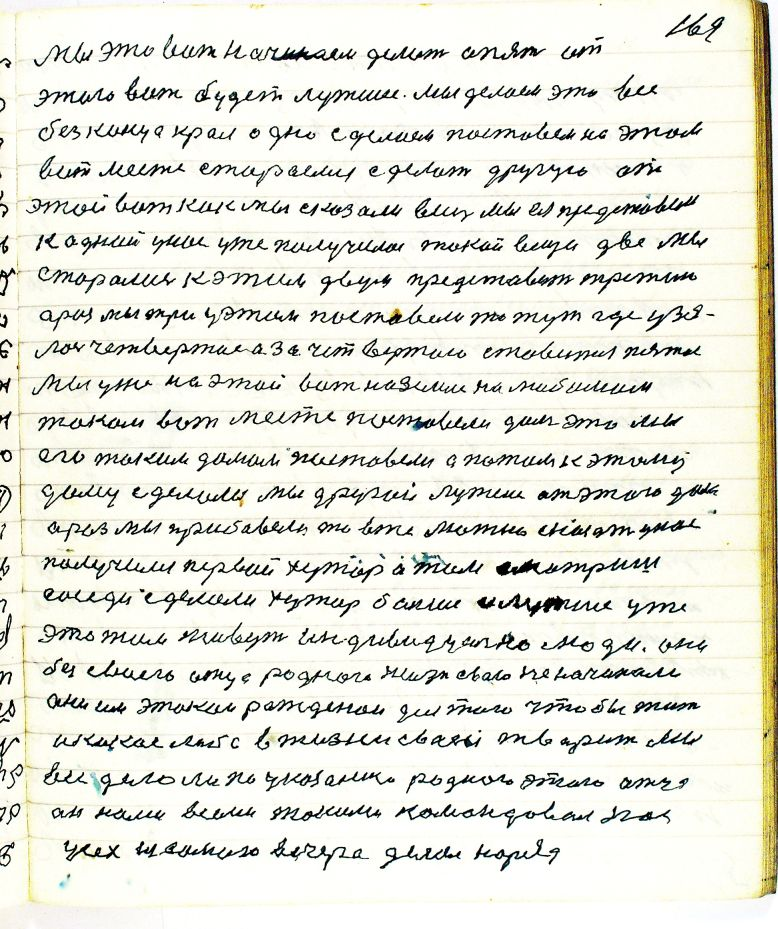 169
мы это вот начинаем делат опят от
этого вот будет лутшее. мы делаем это все
без конца края одно сделаем поставем на этом
вот месте стараемся сделат другую от
этой вот как мы сказали вещ мы ея представем
к одной унас уже получилос такой вещи две мы
старалис к этим двум представит третию
араз мы три уэтом поставели то тут где узя-
лос четвертое а за четвертого ставится пятое
мы уже на этой вот на земле на любомом
таком вот месте поставели дом это мы
его таким домом поставели а потом к этому
дому сделали мы другой лутше от этого дома
араз мы прибавели то вже можно сказат унас
получился первый хутор а там смотриш
соседи сделали хутор болше и лутше уже
это там живут индивидуално люди. они
без своего отца родного жизн своюю неначинали
они им этаком рожденои для того чтобы жит
и какое либо в жизни своей творит мы
все делоли по указанию родного этого отца
он нами всеми такими командовал нас
усех из самого вечера делал наряд